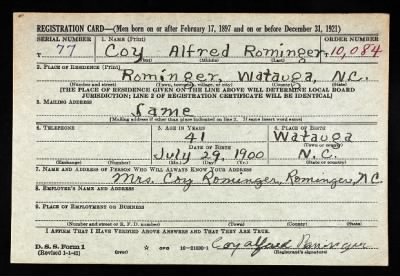 REGISTRATION CARD—(Men born on or after February 17, 1897 and on or before December 31, 1921)
SERIAL NUMBER 1. NAME (Print) ORDER NUMBER
T 77 Coy Alfred Rominger 10,084
(First) (Middle) (Last)
2. PLACE OF RESIDENCE (Print)
Rominger, Watauga, N.C.
(Number and street) (Town, township, village, or city) (County) (State)
(THE PLACE OF RESIDENCE GIVEN ON THE LINE ABOVE WILL DETERMINE LOCAL BOARD
JURISDICTION; LINE 2 OF REGISTRATION CERTIFICATE WILL BE IDENTICAL)
3. MAILING ADDRESS
Same
(Mailing address if other than place indicated on line 2. If same insert word same)
4. TELEPHONE 5. AGE IN YEARS 6. PLACE OF BIRTH
41 Watauga
DATE OF BIRTH (Town or county)
July 29, 1900 N.C.
(Exchange) (Number) (Mo.) (Day) (Yr.) (State or country)
7. NAME AND ADDRESS OF PERSON WHO WILL ALWAYS KNOW YOUR ADDRESS
Mrs. Coy Rominger, Rominger, N.C.
8. EMPLOYER'S NAME AND ADDRESS
9. PLACE OF EMPLOYMENT OR BUSINESS
(Number and street or R. F. D. number) (Town) (County) (State)
I AFFIRM THAT I HAVE VERIFIED ABOVE ANSWERS AND THAT THEY ARE TRUE.
D. S. S. Form 1 (over) GPO 16—21630-1 Coy Alfred Rominger
(Revised 1-1-42) (Registrant's signature)